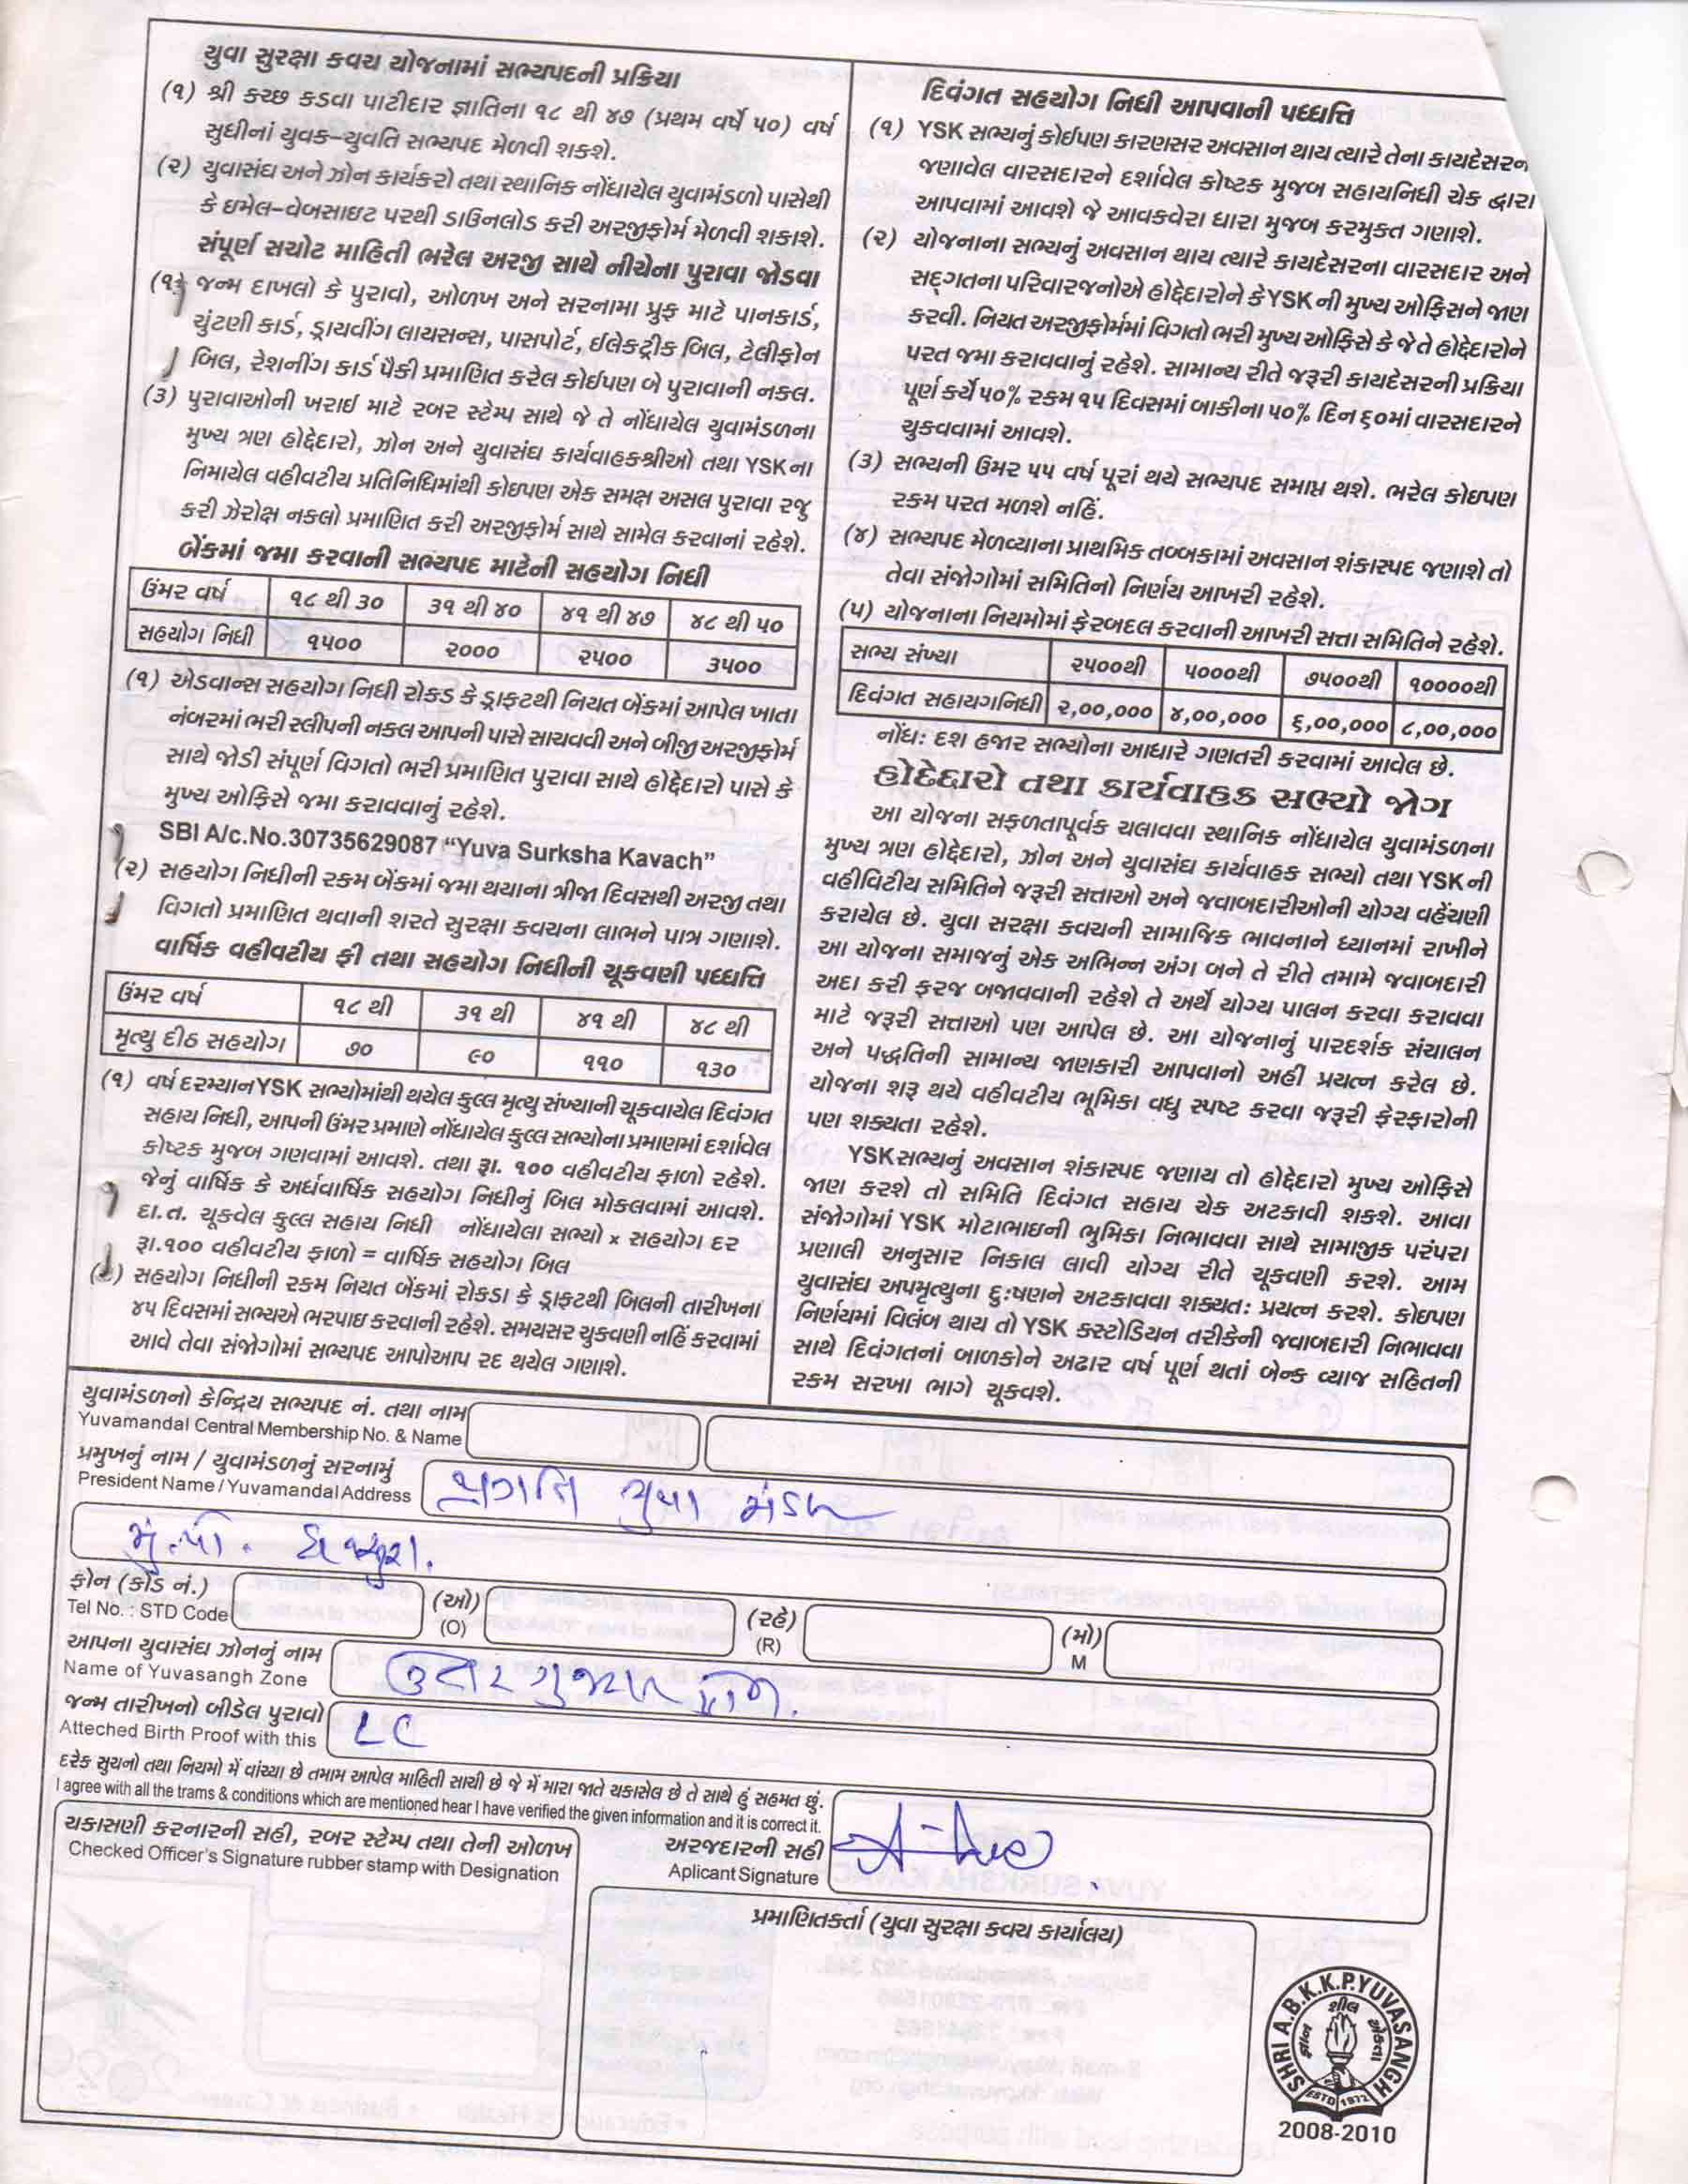 યુવા સુરક્ષા કવચ યોજનામાં સભ્યપદની પ્રક્રિયા
(૧) શ્રી કચ્છ કડવા પાટીદાર જ્ઞાતિના ૧૮ થી ૪૭ (પ્રથમ વર્ષે ૫૦) વર્ષ
સુધીનાં યુવક–યુવતિ સભ્યપદ મેળવી શકશે.
(૨) યુવાસંઘ અને ઝોન કાર્યકરો તથા સ્થાનિક નોંધાયેલ યુવામંડળો પાસેથી
કે ઇમેલ–વેબસાઇટ પરથી ડાઉનલોડ કરી અરજીફોર્મ મેળવી શકાશે.
સંપૂર્ણ સચોટ માહિતી ભરેલ અરજી સાથે નીચેના પુરાવા જોડવા
(૧) જન્મ દાખલો કે પુરાવો, ઓળખ અને સરનામા પ્રુફ માટે પાનકાર્ડ,
ચુંટણી કાર્ડ, ડ્રાયવીંગ લાયસન્સ, પાસપોર્ટ, ઈલેકટ્રીક બિલ, ટેલીફોન
બિલ, રેશનીંગ કાર્ડ પૈકી પ્રમાણિત કરેલ કોઈપણ બે પુરાવાની નકલ.
(૩) પુરાવાઓની ખરાઇ માટે રબર સ્ટેમ્પ સાથે જે તે નોંધાયેલ યુવામંડળના
મુખ્ય ત્રણ હોદ્દેદારો, ઝોન અને યુવાસંઘ કાર્યવાહકશ્રીઓ તથા YSKના
નિમાયેલ વહીવટીય પ્રતિનિધિમાંથી કોઇપણ એક સમક્ષ અસલ પુરાવા રજુ
કરી ઝેરોક્ષ નકલો પ્રમાણિત કરી અરજીફોર્મ સાથે સામેલ કરવાનાં રહેશે.
બેંકમાં જમા કરવાની સભ્યપદ માટેની સહયોગ નિધી
ઉંમર વર્ષ ૧૮ થી ૩૦ ૩૧ થી ૪૦ ૪૧ થી ૪૭ ૪૮ થી ૫૦
સહયોગ નિધી ૧૫૦૦ ૨૦૦૦ ૨૫૦૦ ૩૫૦૦
(૧) એડવાન્સ સહયોગ નિધી રોકડ કે ડ્રાફટથી નિયત બેંકમાં આપેલ ખાતા
નંબરમાં ભરી સ્લીપની નકલ આપની પાસે સાચવવી અને બીજી અરજીફોર્મ
સાથે જોડી સંપૂર્ણ વિગતો ભરી પ્રમાણિત પુરાવા સાથે હોદ્દેદારો પાસે કે
મુખ્ય ઓફિસે જમા કરાવવાનું રહેશે.
SBI A/c.No.30735629087 “Yuva Surksha Kavach”
(૨) સહયોગ નિધીની રકમ બેંકમાં જમા થયાના ત્રીજા દિવસથી અરજી તથા
વિગતો પ્રમાણિત થવાની શરતે સુરક્ષા કવચના લાભને પાત્ર ગણાશે.
વાર્ષિક વહીવટીય ફી તથા સહયોગ નિધીની ચૂકવણી પધ્ધતિ
ઉંમર વર્ષ ૧૮ થી ૩૧ થી ૪૧ થી ૪૮ થી
મૃત્યુ દીઠ સહયોગ ૭૦ ૯૦ ૧૧૦ ૧૩૦
(૧) વર્ષ દરમ્યાન YSK સભ્યોમાંથી થયેલ કુલ્લ મૃત્યુ સંખ્યાની ચૂકવાયેલ દિવંગત
સહાય નિધી, આપની ઉંમર પ્રમાણે નોંધાયેલ કુલ્લ સભ્યોના પ્રમાણમાં દર્શાવેલ
કોષ્ટક મુજબ ગણવામાં આવશે. તથા રૂા. ૧૦૦ વહીવટીય ફાળો રહેશે.
જેનું વાર્ષિક કે અર્ધવાર્ષિક સહયોગ નિધીનું બિલ મોકલવામાં આવશે.
દા.ત. ચૂકવેલ કુલ્લ સહાય નિધી નોંધાયેલા સભ્યો x સહયોગ દર
રૂા.૧૦૦ વહીવટીય ફાળો = વાર્ષિક સહયોગ બિલ
સહયોગ નિધીની રકમ નિયત બેંકમાં રોકડા કે ડ્રાફટથી બિલની તારીખના
૪૫ દિવસમાં સભ્યએ ભરપાઇ કરવાની રહેશે. સમયસર ચુકવણી નહિં કરવામાં
આવે તેવા સંજોગોમાં સભ્યપદ આપોઆપ રદ થયેલ ગણાશે.
દિવંગત સહયોગ નિધી આપવાની પધ્ધતિ
(૧) YSK સભ્યનું કોઈપણ કારણસર અવસાન થાય ત્યારે તેના કાયદેસરન
જણાવેલ વારસદારને દર્શાવેલ કોષ્ટક મુજબ સહાયનિધી ચેક દ્વારા
આપવામાં આવશે જે આવકવેરા ધારા મુજબ કરમુકત ગણાશે.
(૨) યોજનાના સભ્યનું અવસાન થાય ત્યારે કાયદેસરના વારસદાર અને
સદ્ગતના પરિવારજનોએ હોદ્દેદારોને કે YSK ની મુખ્ય ઓફિસને જાણ
કરવી. નિયત અરજીફોર્મમાં વિગતો ભરી મુખ્ય ઓફિસે કે જે તે હોદ્દેદારોને
પરત જમા કરાવવાનું રહેશે. સામાન્ય રીતે જરૂરી કાયદેસરની પ્રક્રિયા
પૂર્ણ કર્યે ૫૦% રકમ ૧૫ દિવસમાં બાકીના ૫૦% દિન ૬૦માં વારસદારને
ચુકવવામાં આવશે.
(૩) સભ્યની ઉમર ૫૫ વર્ષ પૂરાં થયે સભ્યપદ સમાપ્ત થશે. ભરેલ કોઇપણ
રકમ પરત મળશે નહિં.
(૪) સભ્યપદ મેળવ્યાના પ્રાથમિક તબ્બકામાં અવસાન શંકાસ્પદ જણાશે તો
તેવા સંજોગોમાં સમિતિનો નિર્ણય આખરી રહેશે.
(૫) યોજનાના નિયમોમાં ફેરબદલ કરવાની આખરી સત્તા સમિતિને રહેશે.
સભ્ય સંખ્યા ૨૫૦૦થી ૫૦૦૦થી ૭૫૦૦થી ૧૦૦૦૦થી
દિવંગત સહાયગનિધી ૨,૦૦,૦૦૦ ૪,૦૦,૦૦૦ ૬,૦૦,૦૦૦ ૮,૦૦,૦૦૦
નોંધ: દશ હજાર સભ્યોના આધારે ગણતરી કરવામાં આવેલ છે.
હોદેદારો તથા કાર્યવાહક સભ્યો જોગ
આ યોજના સફળતાપૂર્વક ચલાવવા સ્થાનિક નોંધાયેલ યુવામંડળના
મુખ્ય ત્રણ હોદ્દેદારો, ઝોન અને યુવાસંઘ કાર્યવાહક સભ્યો તથા YSK ની
વહીવિટીય સમિતિને જરૂરી સત્તાઓ અને જવાબદારીઓની યોગ્ય વહેંચણી
કરાયેલ છે. યુવા સરક્ષા કવચની સામાજિક ભાવનાને ધ્યાનમાં રાખીને
આ યોજના સમાજનું એક અભિન્ન અંગ બને તે રીતે તમામે જવાબદારી
અદા કરી ફરજ બજાવવાની રહેશે તે અર્થે યોગ્ય પાલન કરવા કરાવવા
માટે જરૂરી સત્તાઓ પણ આપેલ છે. આ યોજનાનું પારદર્શક સંચાલન
અને પદ્ધતિની સામાન્ય જાણકારી આપવાનો અહીં પ્રયત્ન કરેલ છે.
યોજના શરૂ થયે વહીવટીય ભૂમિકા વધુ સ્પષ્ટ કરવા જરૂરી ફેરફારોની
પણ શક્યતા રહેશે.
YSK સભ્યનું અવસાન શંકાસ્પદ જણાય તો હોદ્દેદારો મુખ્ય ઓફિસે
જાણ કરશે તો સમિતિ દિવંગત સહાય ચેક અટકાવી શકશે. આવા
સંજોગોમાં YSK મોટાભાઇની ભુમિકા નિભાવવા સાથે સામાજીક પરંપરા
પ્રણાલી અનુસાર નિકાલ લાવી યોગ્ય રીતે ચૂકવણી કરશે. આમ
યુવાસંઘ અપમૃત્યુના દુ:ષણને અટકાવવા શક્યત: પ્રયત્ન કરશે. કોઇપણ
નિર્ણયમાં વિલંબ થાય તો YSK કસ્ટોડિયન તરીકેની જવાબદારી નિભાવવા
સાથે દિવંગતનાં બાળકોને અઢાર વર્ષ પૂર્ણ થતાં બેન્ક વ્યાજ સહિતની
રકમ સરખા ભાગે ચૂકવશે.
યુવામંડળનો કેન્દ્રિય સભ્યપદ નં. તથા નામ
Yuvamandal Central Membership No. & Name
પ્રમુખનું નામ / યુવામંડળનું સરનામું
President Name / Yuvamandal Address પ્રગતિ યુવા મંડળ
મું.પો.
ફોન (કોડ નં.)
Tel No. : STD Code
(ઓ)
(O)
(રહે)
(R)
(મો)
M
આપના યુવાસંઘ ઝોનનું નામ
Name of Yuvasangh Zone ઉત્તર ગુજરાત ઝોન.
જન્મ તારીખનો બીડેલ પુરાવો
Atteched Birth Proof with this LC
દરેક સુચનો તથા નિયમો મેં વાંચ્યા છે તમામ આપેલ માહિતી સાચી છે જે મેં મારા જાતે ચકાસેલ છે તે સાથે હું સહમત છું.
I agree with all the trams & conditions which are mentioned hear I have verified the given information and it is correct it.
ચકાસણી કરનારની સહી, રબર સ્ટેમ્પ તથા તેની ઓળખ
Checked Officer's Signature rubber stamp with Designation
અરજદારની સહી
Aplicant Signature
પ્રમાણિતકર્તા (યુવા સુરક્ષા કવચ કાર્યાલય)
SHRI A.B.K.K.P.YUVASANGH
શીલ
એકતા
ESTD 1972
2008-2010